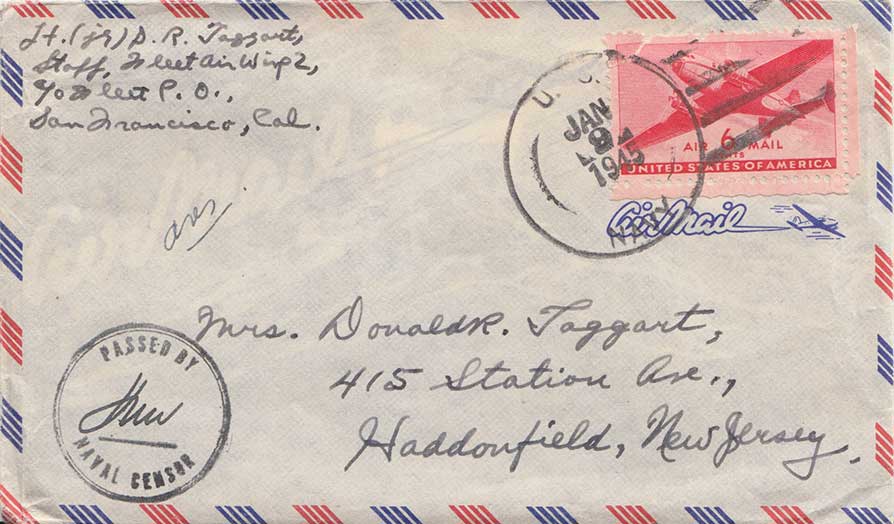 Lt. (jg) D. R. Taggart,
Staff, Fleet Air Wing 2,
c/o Fleet P. O.,
San Francisco, Cal.
U. S.
JAN
1945
NAVY
AIR 6 MAIL
CENTS
UNITED STATES OF AMERICA
Air Mail
ans
Mrs. Donald R. Taggart,
415 Station Ave.,
Haddonfield, New Jersey.
PASSED BY
NAVAL CENSOR